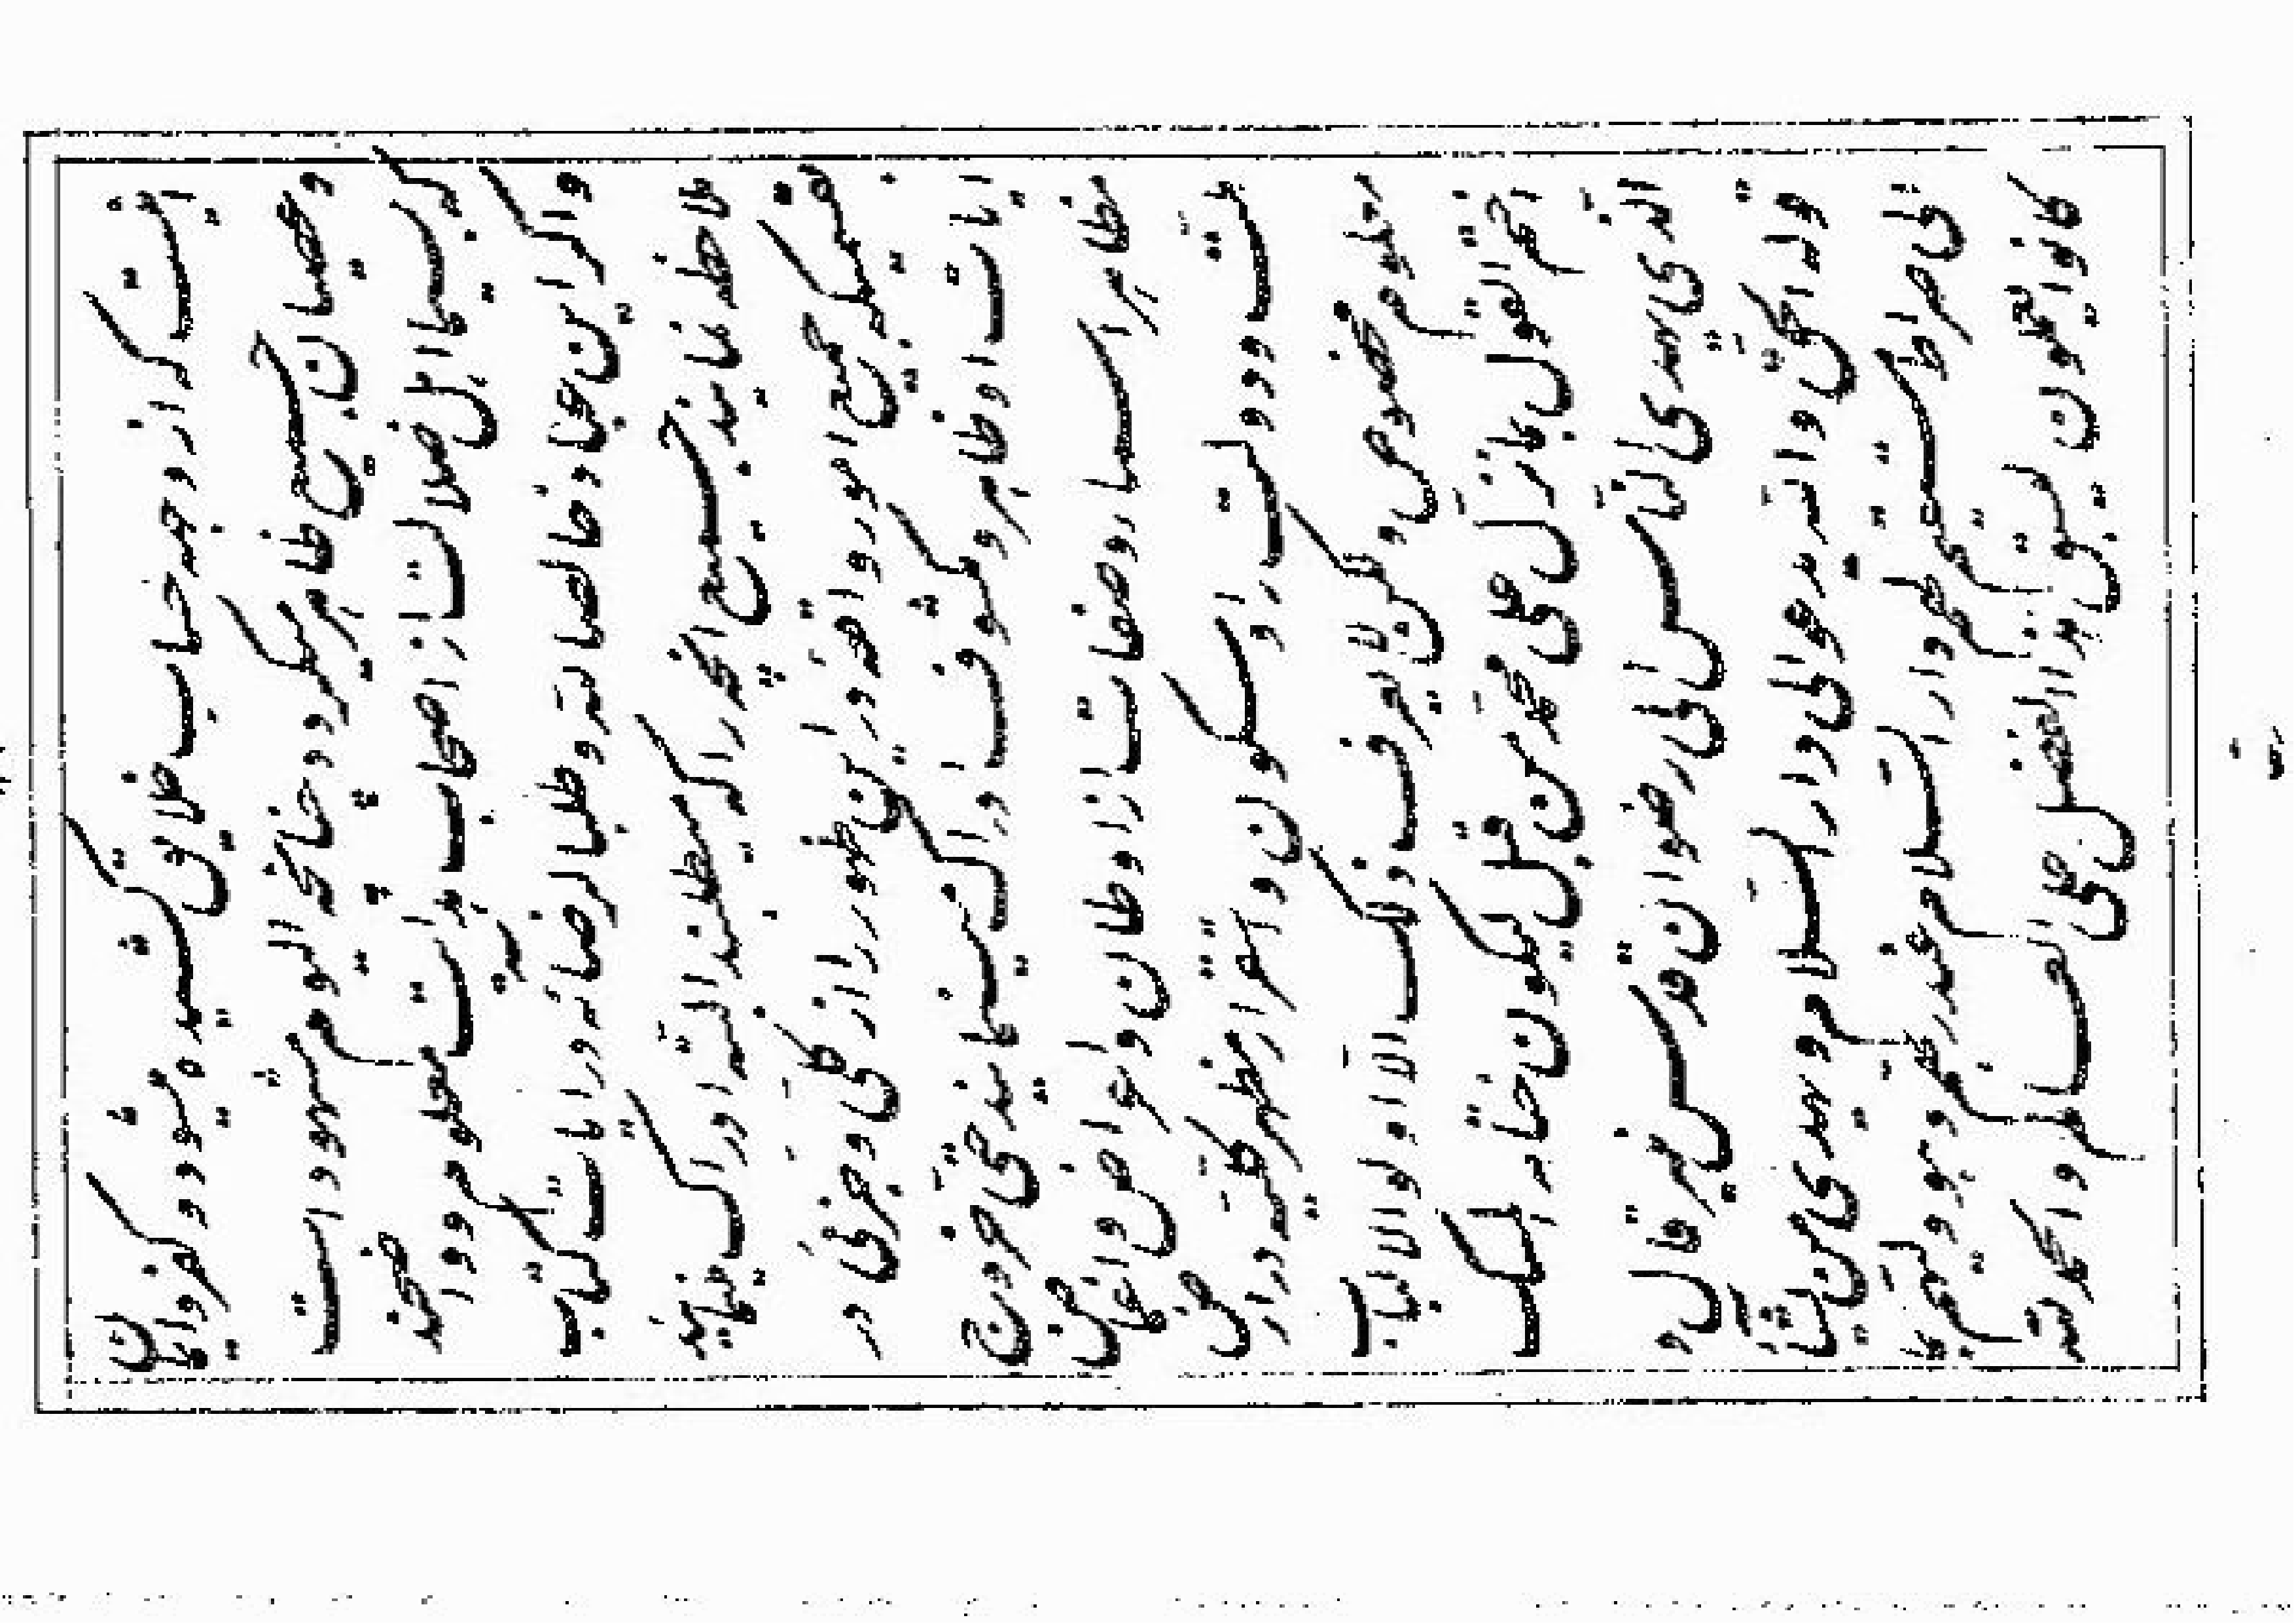 است که از وجه خلائق کشیده شود و کفر و ایمان
و عصیان جمیع ظاهر میگردد چنانچه الیوم مشهود است
که بسیما اهل ضلالت از اصحاب هدایت معلوم و واضحند
و اگر این عباد خالصا لله و طلبا لرضائه در آیات کتاب
ملاحظه نمایند جمیع آنچه را که میطلبند البته ادراک مینمایند
بقسمیکه جمیع امور واقعه در این ظهور را از کلی و جزئی در
آیات او ظاهر و مکشوف ادراک مینمایند حتی خروج
مظاهر اسما و صفات از اوطان و اعراض و اغماض
ملت و دولت را و سکون و استقرار مظهر کلیه در ارض
معلوم مخصوص ولکن لا یعرف ذلک الا اولوا الالباب
اختم القول بما نزل علی محمد من قبل لیکون ختامه المسک
الذی یهدی الناس الی رضوان قدس منیر قال و
قوله الحق والله یدعو الی دار السلام و یهدی من یشاء
الی صراط مستقیم لهم دار السلام عند ربهم و هو ولیهم بما
کانوا یعملون لیسبق هذا الفضل علی العالم والحمد لله